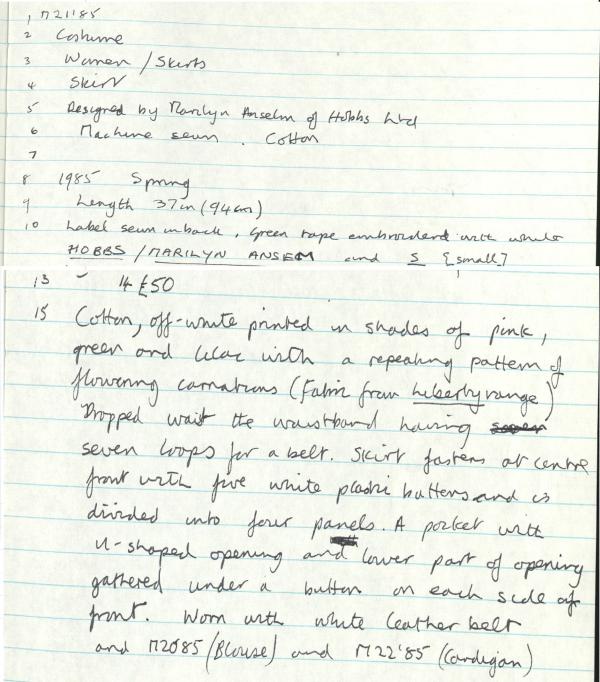 1 M21'85
2 Costume
3 Women / Skirts
4 Skirt
5 Designed by Marilyn Anselm of Hobbs Ltd
6 Machine sewn. Cotton
7
8 1985 Spring
9 Length 37in (94cm)
10 Label sewn inback, green tape embroidered with white
HOBBS / MARILYN ANSEM and S [small]
13 - 14 £50
15 Cotton, off-white printed in shades of pink,
green and lilac with a repeating pattern of
flowering carnations (Fabric from Liberty range)
Dropped waist the waistband having
seven loops for a belt. Skirt fastens at centre
front with five white plastic buttons and is
divided into four panels. A pocket with
U-shaped opening and lower part of opening
gathered under a button on each side of
front. Worn with white leather belt
and M20'85 (Blouse) and M22'85 (Cardigan)